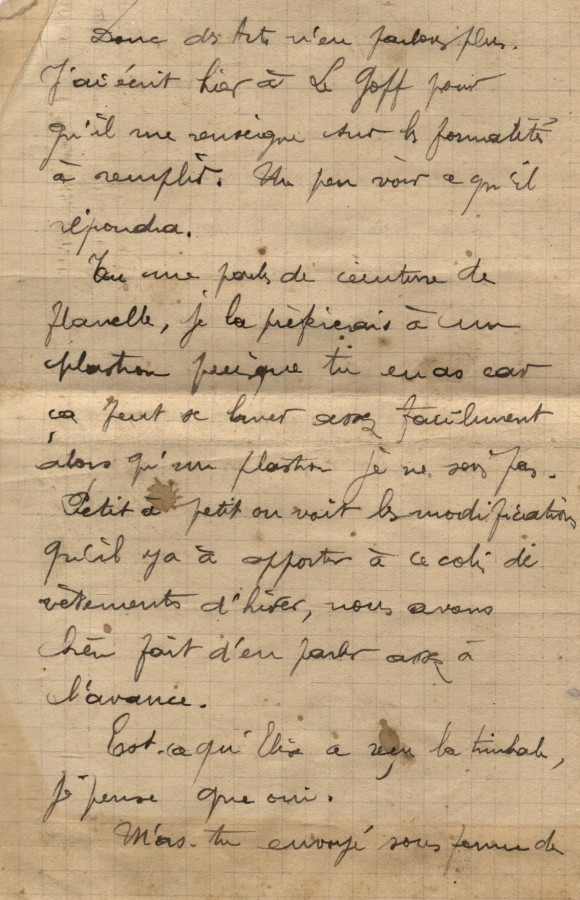 Donc des Arts n'en parlons plus.
J'ai écrit hier à Le Goff pour
qu'il me renseigne sur les formalités
à remplir. Un peu voir ce qu'il
répondra.
Tu me parles de ceinture de
flanelle, je la préfèrerais à un
plastron puisque tu en as car
ça peut se laver assez facilement
alors qu'un plastron je ne sais pas.
Petit à petit on voit les modifications
qu'il y a à apporter à ce colis de
vêtements d'hiver, nous avons
bien fait d'en parler assez à
l'avance.
Est-ce qu'Elise a reçu la timbale,
je pense que oui.
M'as-tu envoyé sous forme de